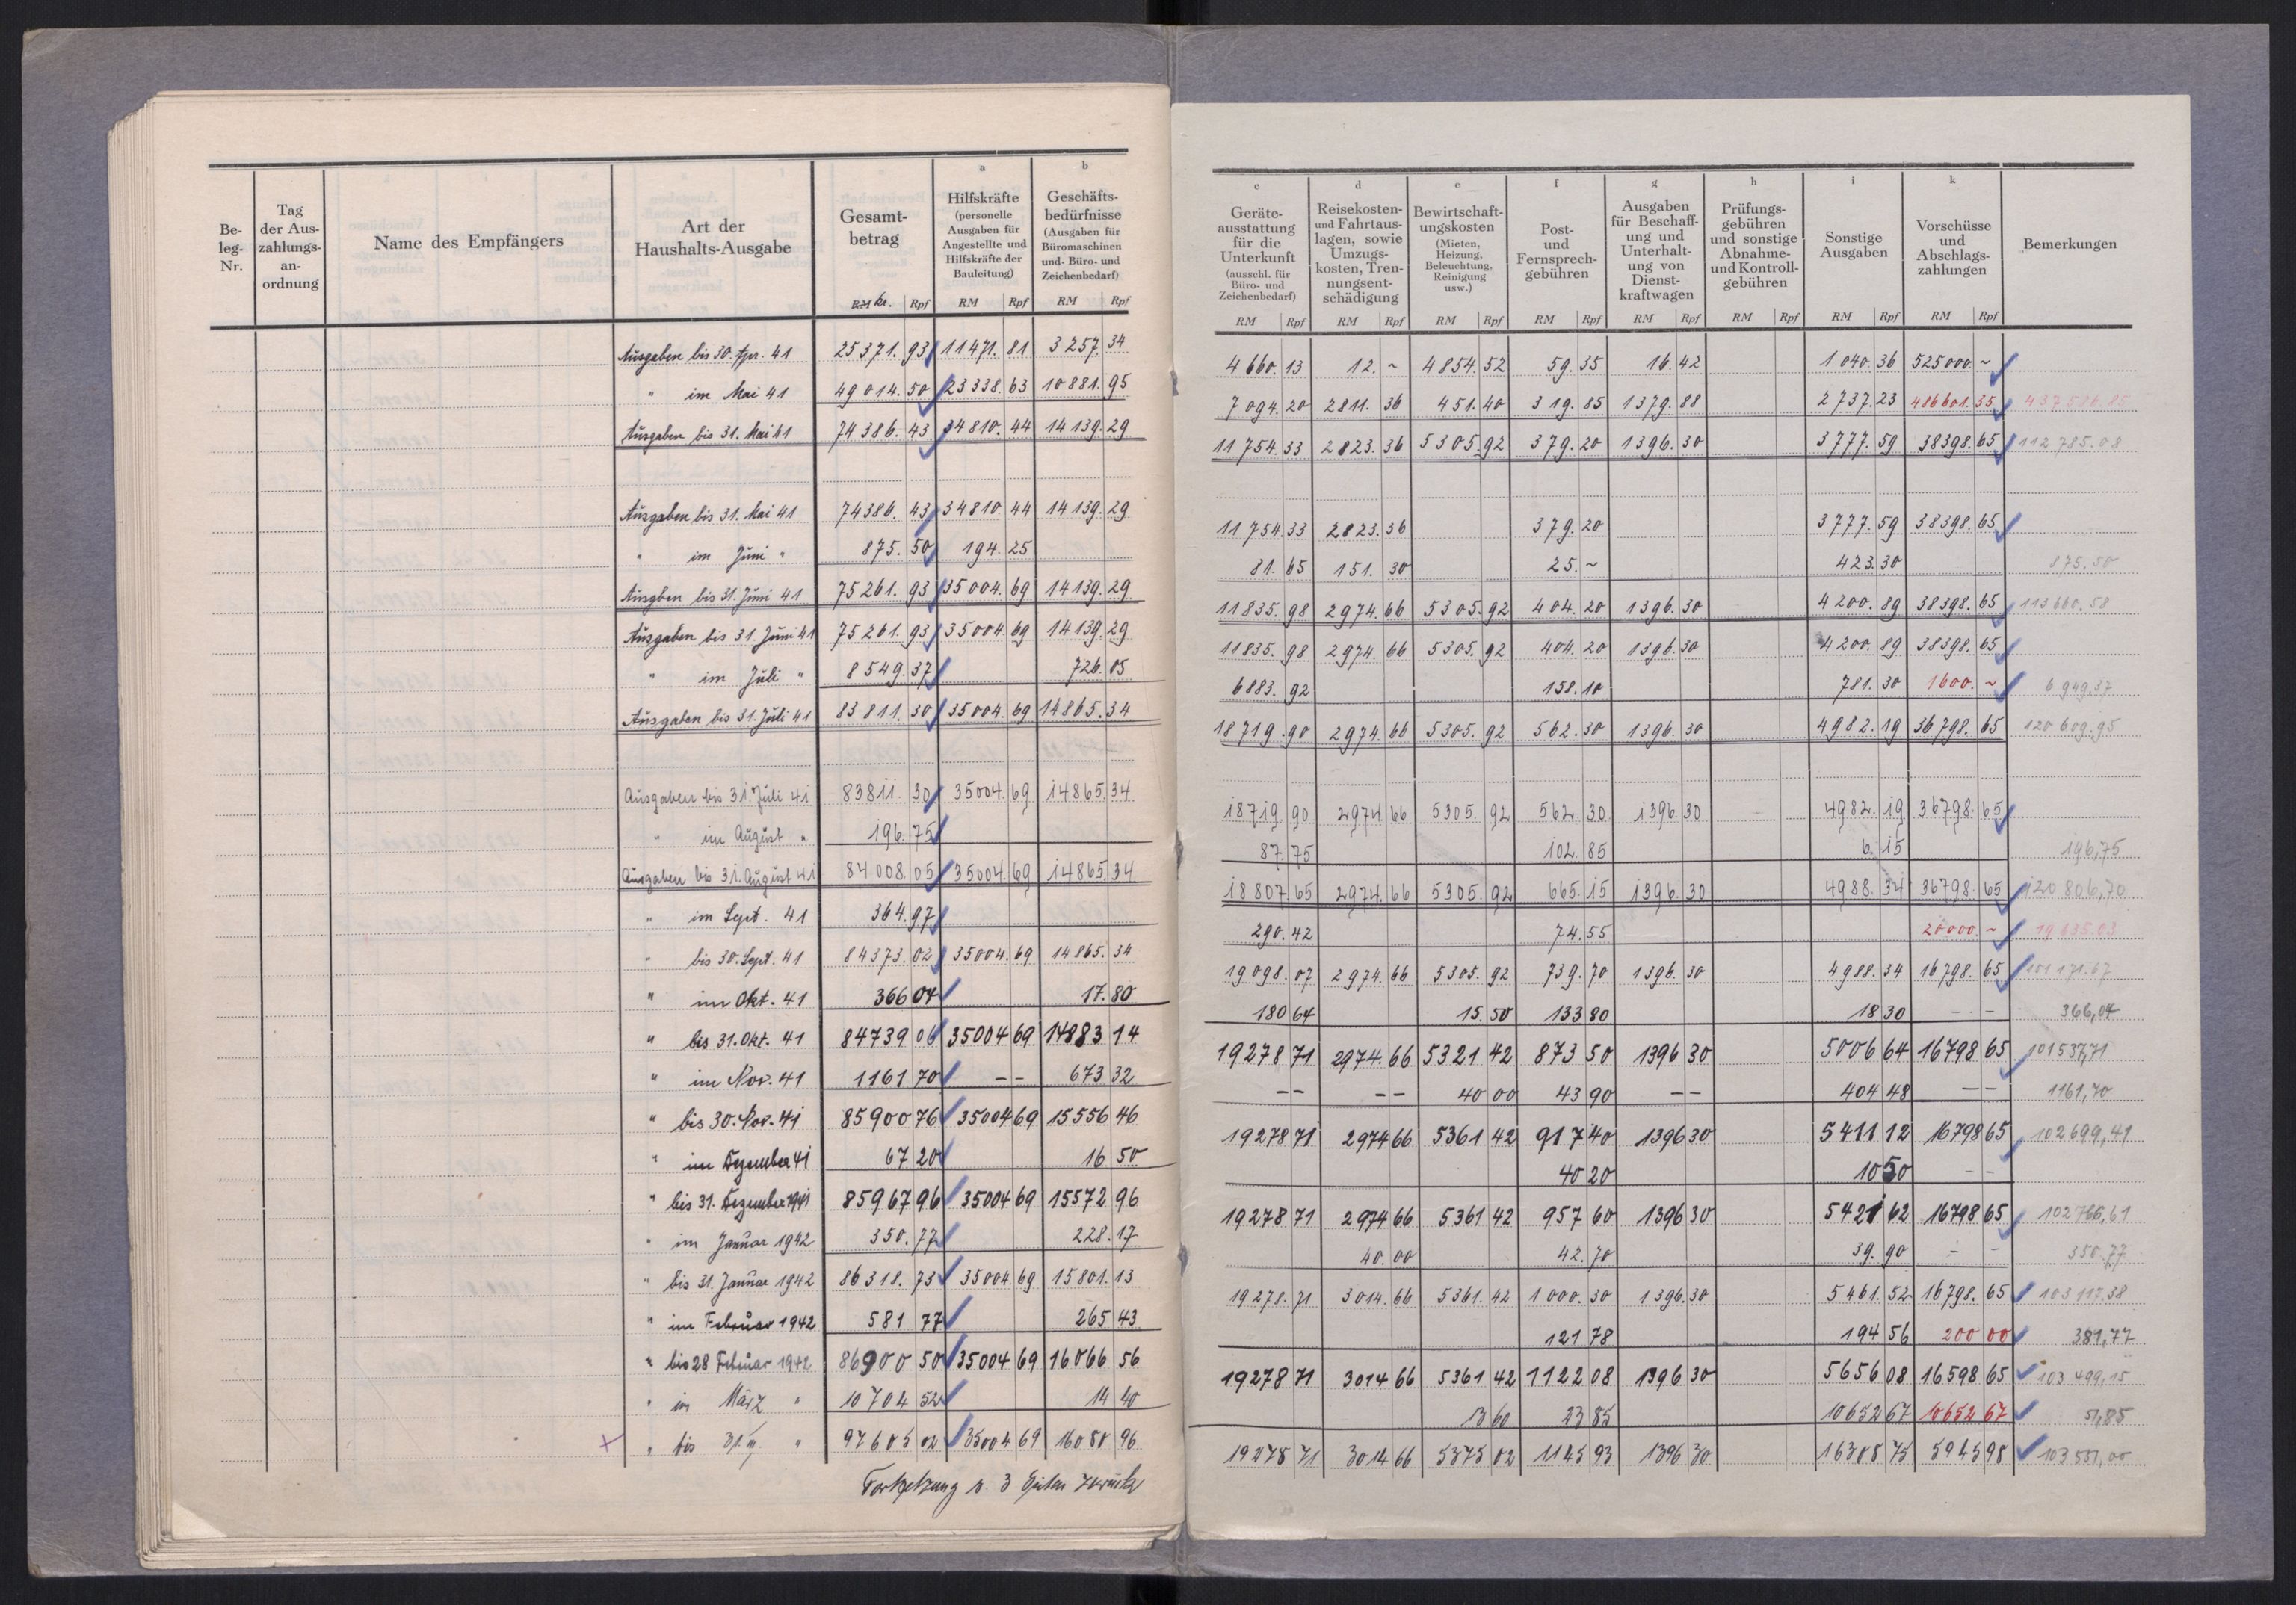 Be-leg-Nr. | Tag der Aus-zahlungs-an-ordnung | Name des Empfängers | Art der Haushalts-Ausgabe | Gesamt-betrag RM Kr. Rpf | a Hilfskräfte (personelle Ausgaben für Angestellte und Hilfskräfte der Bauleitung) RM Rpf | b Geschäfts-bedürfnisse (Ausgaben für Büromaschinen und- Büro- und Zeichenbedarf) RM Rpf | c Geräte-ausstattung für die Unterkunft (ausschl. für Büro- und Zeichenbedarf) RM Rpf | d Reisekosten- und Fahrtaus-lagen, sowie Umzugs-kosten, Tren-nungsent-schädigung RM Rpf | e Bewirtschaft-ungskosten (Mieten, Heizung, Beleuchtung, Reinigung usw.) RM Rpf | f Post- und Fernsprech-gebühren RM Rpf | g Ausgaben für Beschaff-ung und Unterhalt-ung von Dienst-kraftwagen RM Rpf | h Prüfungs-gebühren und sonstige Abnahme- und Kontroll-gebühren RM Rpf | i Sonstige Ausgaben RM Rpf | k Vorschüsse und Abschlags-zahlungen RM Rpf | Bemerkungen
Ausgaben bis 30. Apr. 41 | 25371.93 | 11471.81 | 3257.34 | 4660.13 | 12.~ | 4854.52 | 59.35 | 16.42 | 1040.36 | 525000.~
" im Mai 41 | 49014.50 | 23338.63 | 10881.95 | 7094.20 | 2811.36 | 451.40 | 319.85 | 1379.88 | 2737.23 | 486601.35 | 437586.85
Ausgaben bis 31. Mai 41 | 74386.43 | 34810.44 | 14139.29 | 11754.33 | 2823.36 | 5305.92 | 379.20 | 1396.30 | 3777.59 | 38398.65 | 112785.08
Ausgaben bis 31. Mai 41 | 74386.43 | 34810.44 | 14139.29 | 11754.33 | 2823.36 | 379.20 | 3777.59 | 38398.65
" im Juni " | 875.50 | 194.25 | 81.65 | 151.30 | 25.~ | 423.30 | 875.50
Ausgben bis 31. Juni 41 | 75261.93 | 35004.69 | 14139.29 | 11835.98 | 2974.66 | 5305.92 | 404.20 | 1396.30 | 4200.89 | 38398.65 | 113660.58
Ausgaben bis 31. Juni 41 | 75261.93 | 35004.69 | 14139.29 | 11835.98 | 2974.66 | 5305.92 | 404.20 | 1396.30 | 4200.89 | 38398.65
" im Juli " | 8549.37 | 726.05 | 6883.92 | 158.10 | 781.30 | 1600.~ | 6949.37
Ausgaben bis 31. Juli 41 | 83811.30 | 35004.69 | 14865.34 | 18719.90 | 2974.66 | 5305.92 | 562.30 | 1396.30 | 4982.19 | 36798.65 | 120609.95
Ausgaben bis 31. Juli 41 | 83811.30 | 35004.69 | 14865.34 | 18719.90 | 2974.66 | 5305.92 | 562.30 | 1396.30 | 4982.19 | 36798.65
" im August " | 196.75 | 87.75 | 102.85 | 6.15 | 196,75
Ausgaben bis 31. August 41 | 84008.05 | 35004.69 | 14865.34 | 18807.65 | 2974.66 | 5305.92 | 665.15 | 1396.30 | 4988.34 | 36798.65 | 120806,70
" im Sept. 41 | 364.97 | 290.42 | 74.55 | 20000.~ | 19635.03
" bis 30. Sept. 41 | 84373.02 | 35004.69 | 14865.34 | 19098.07 | 2974.66 | 5305.92 | 739.70 | 1396.30 | 4988.34 | 16798.65 | 101171.67
" im Okt. 41 | 366 04 | 17.80 | 180 64 | 15.50 | 133 80 | 18 30 | - - | 366,04
" bis 31. Okt. 41 | 84739 06 | 35004 69 | 14883 14 | 19278 71 | 2974.66 | 5321 42 | 873 50 | 1396 30 | 5006 64 | 16798 65 | 101537,71
" im Nov. 41 | 1161 70 | -- | 673 32 | -- | -- | 40 00 | 43 90 | -- | 404 48 | -- | 1161,70
" bis 30. Nov. 41 | 85900 76 | 35004 69 | 15556 46 | 19278 71 | 2974 66 | 5361 42 | 917 40 | 1396 30 | 5411 12 | 16798 65 | 102699,41
" im Dezember 41 | 67 20 | 16 50 | 40 20 | 10 50 | --
" bis 31. Dezember 1941 | 85967 96 | 35004 69 | 15572 96 | 19278 71 | 2974 66 | 5361 42 | 957 60 | 1396 30 | 5421 62 | 16798 65 | 102766,61
" im Januar 1942 | 350.77 | 228.17 | 40.00 | 42.70 | 39.90 | - - | 350.77
" bis 31. Januar 1942 | 86318.73 | 35004.69 | 15801.13 | 19278.71 | 3014.66 | 5361.42 | 1000.30 | 1396.30 | 5461.52 | 16798.65 | 103117.38
" im Februar 1942 | 581 77 | 265 43 | 121 78 | 194 56 | 200 00 | 381,77
" bis 28 Februar 1942 | 86900 50 | 35004 69 | 16066 56 | 19278 71 | 3014 66 | 5361 42 | 1122 08 | 1396 30 | 5656 08 | 16598 65 | 103 499,15
" im März " | 10704 52 | 14 40 | 13 60 | 23 85 | 10652 67 | 10652 67 | 51,85
" bis 31. III. " | 97605 02 | 35004 69 | 16080 96 | 19278 71 | 3014 66 | 5375 02 | 1145 93 | 1396 30 | 16308 75 | 5945 98 | 103 551,00
Fortsetzung s. 3 Seiten zurück